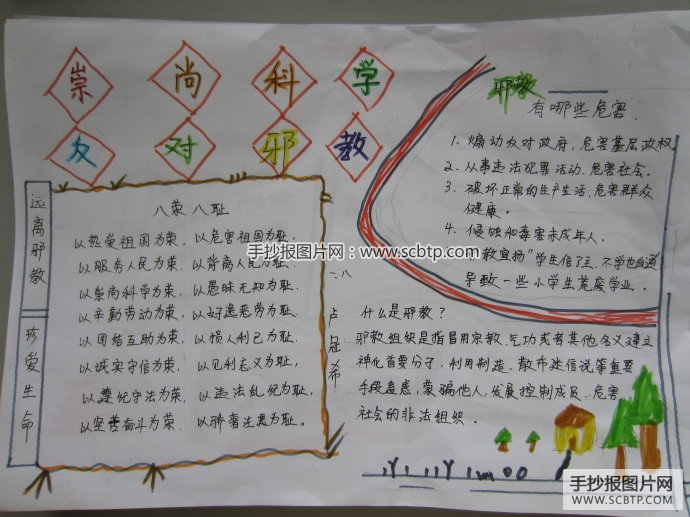 崇尚科学
友对邪教
远离邪教
珍爱生命
八荣八耻
以热爱祖国为荣、以危害祖国为耻、
以服务人民为荣、以背离人民为耻、
以崇尚科学为荣、以愚昧无知为耻、
以辛勤劳动为荣、以好逸恶劳为耻、
以团结互助为荣、以损人利己为耻、
以诚实守信为荣、以见利忘义为耻、
以遵纪守法为荣、以违法乱纪为耻、
以坚苦奋斗为荣、以骄奢注逸为耻。
二、八
卢冠希
邪教
有哪些危害.
1、煽动反对政府,危害基层政权
2、从事违法犯罪活动、危害社会。
3、破坏正常的生产生活,危害群众
健康。
4、侵蚀和毒害未成年人。
教宣扬“学生信了主,不学也自通
导致一些小学生荒废学业。
什么是邪教?
邪教组织是指冒用宗教、气功或者其他名义建立
神化首要分子,利用制造、散布迷信说等重要
手段蛊惑,蒙骗他人,发展控制成员、危害
社会的非法组织.
手抄报图片网:www.scbtp.com
手抄报图片网
WWW.SCBTP.COM